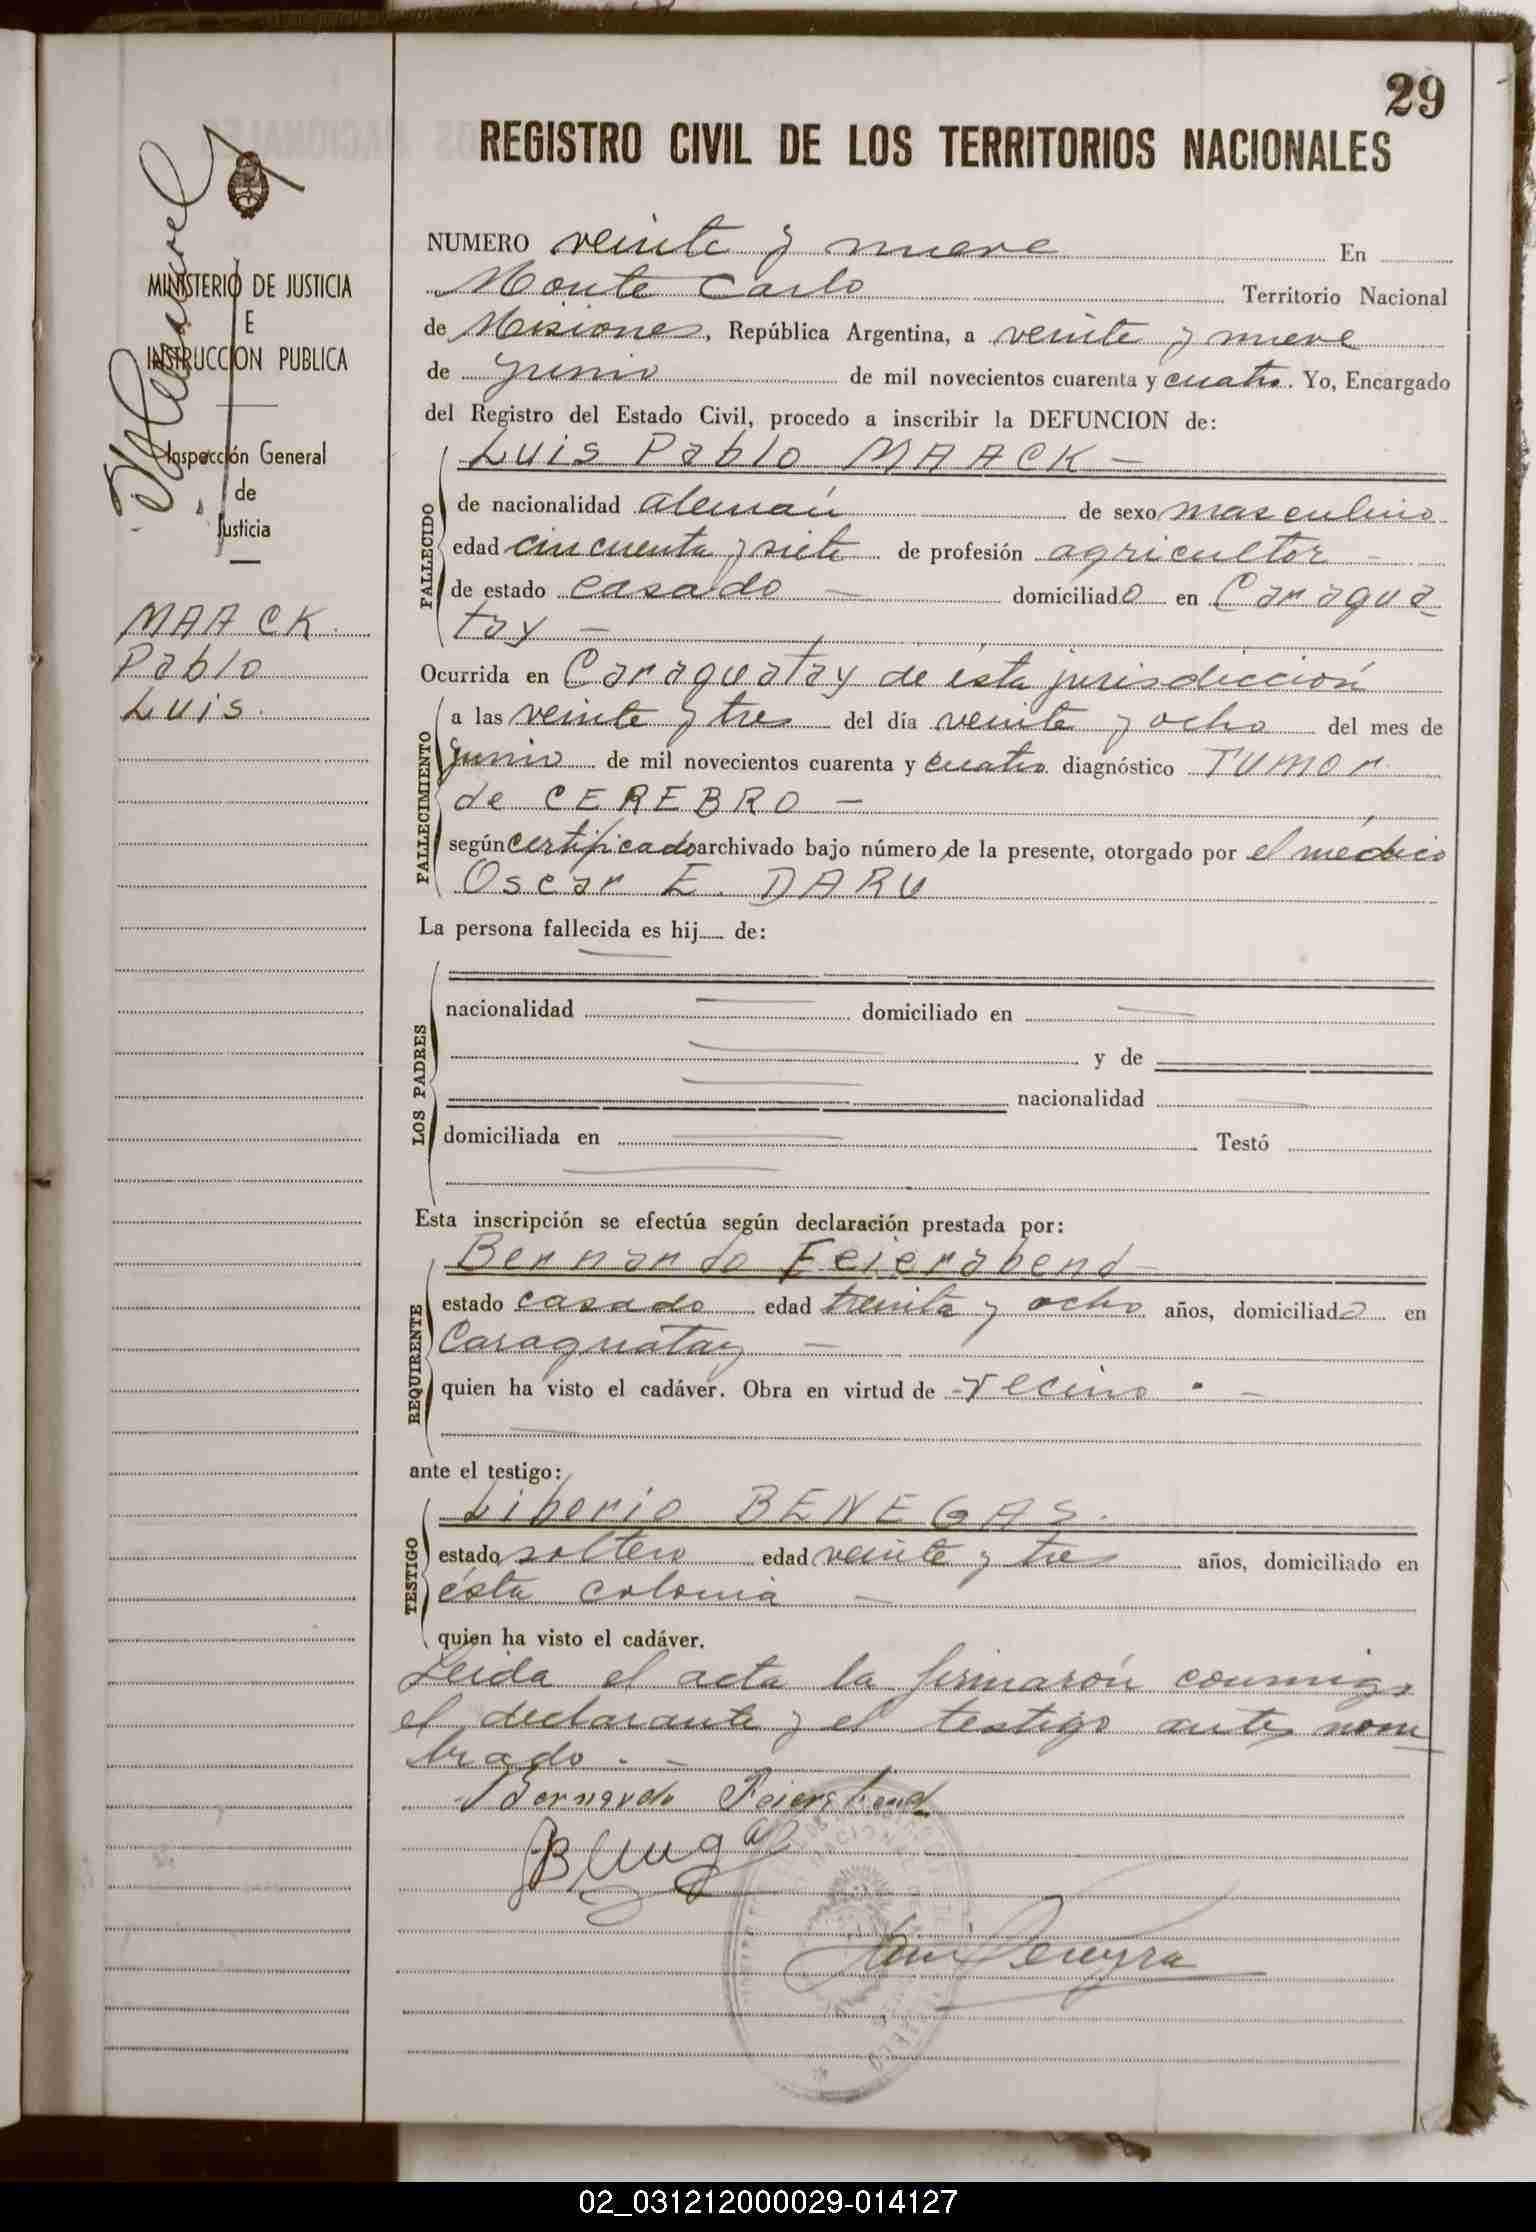 29
REGISTRO CIVIL DE LOS TERRITORIOS NACIONALES
MINISTERIO DE JUSTICIA
E
INSTRUCCION PUBLICA
Inspección General
de
Justicia
MAACK.
Pablo
Luis.
NUMERO veinte y nueve En
Monte Carlo Territorio Nacional
de Misiones, República Argentina, a veinte y nueve
de Junio de mil novecientos cuarenta y cuatro. Yo, Encargado
del Registro del Estado Civil, procedo a inscribir la DEFUNCION de:
Luis Pablo MAACK —
FALLECIDO
de nacionalidad alemán de sexo masculino
edad cincuenta y siete de profesión agricultor —
de estado casado — domiciliado en Caragua
tay —
Ocurrida en Caraguatay de ésta jurisdicción
FALLECIMIENTO
a las veinte y tres del día veinte y ocho del mes de
Junio de mil novecientos cuarenta y cuatro diagnóstico TUMOR
de CEREBRO —
según certificado archivado bajo número de la presente, otorgado por el médico
Oscar E. DARU
La persona fallecida es hij de:
LOS PADRES
nacionalidad domiciliado en
y de
nacionalidad
domiciliada en Testó
Esta inscripción se efectúa según declaración prestada por:
Bernardo Feierabend —
REQUIRENTE
estado casado edad treinta y ocho años, domiciliado en
Caraguatay —
quien ha visto el cadáver. Obra en virtud de vecino . —
ante el testigo:
Liborio BENEGAS.
TESTIGO
estado soltero edad veinte y tres años, domiciliado en
ésta colonia —
quien ha visto el cadáver.
Leida el acta la firmarón conmigo
el declarante y el testigo antes nom
brado. —
Bernardo Feierabend
Pereyra
02_031212000029-014127